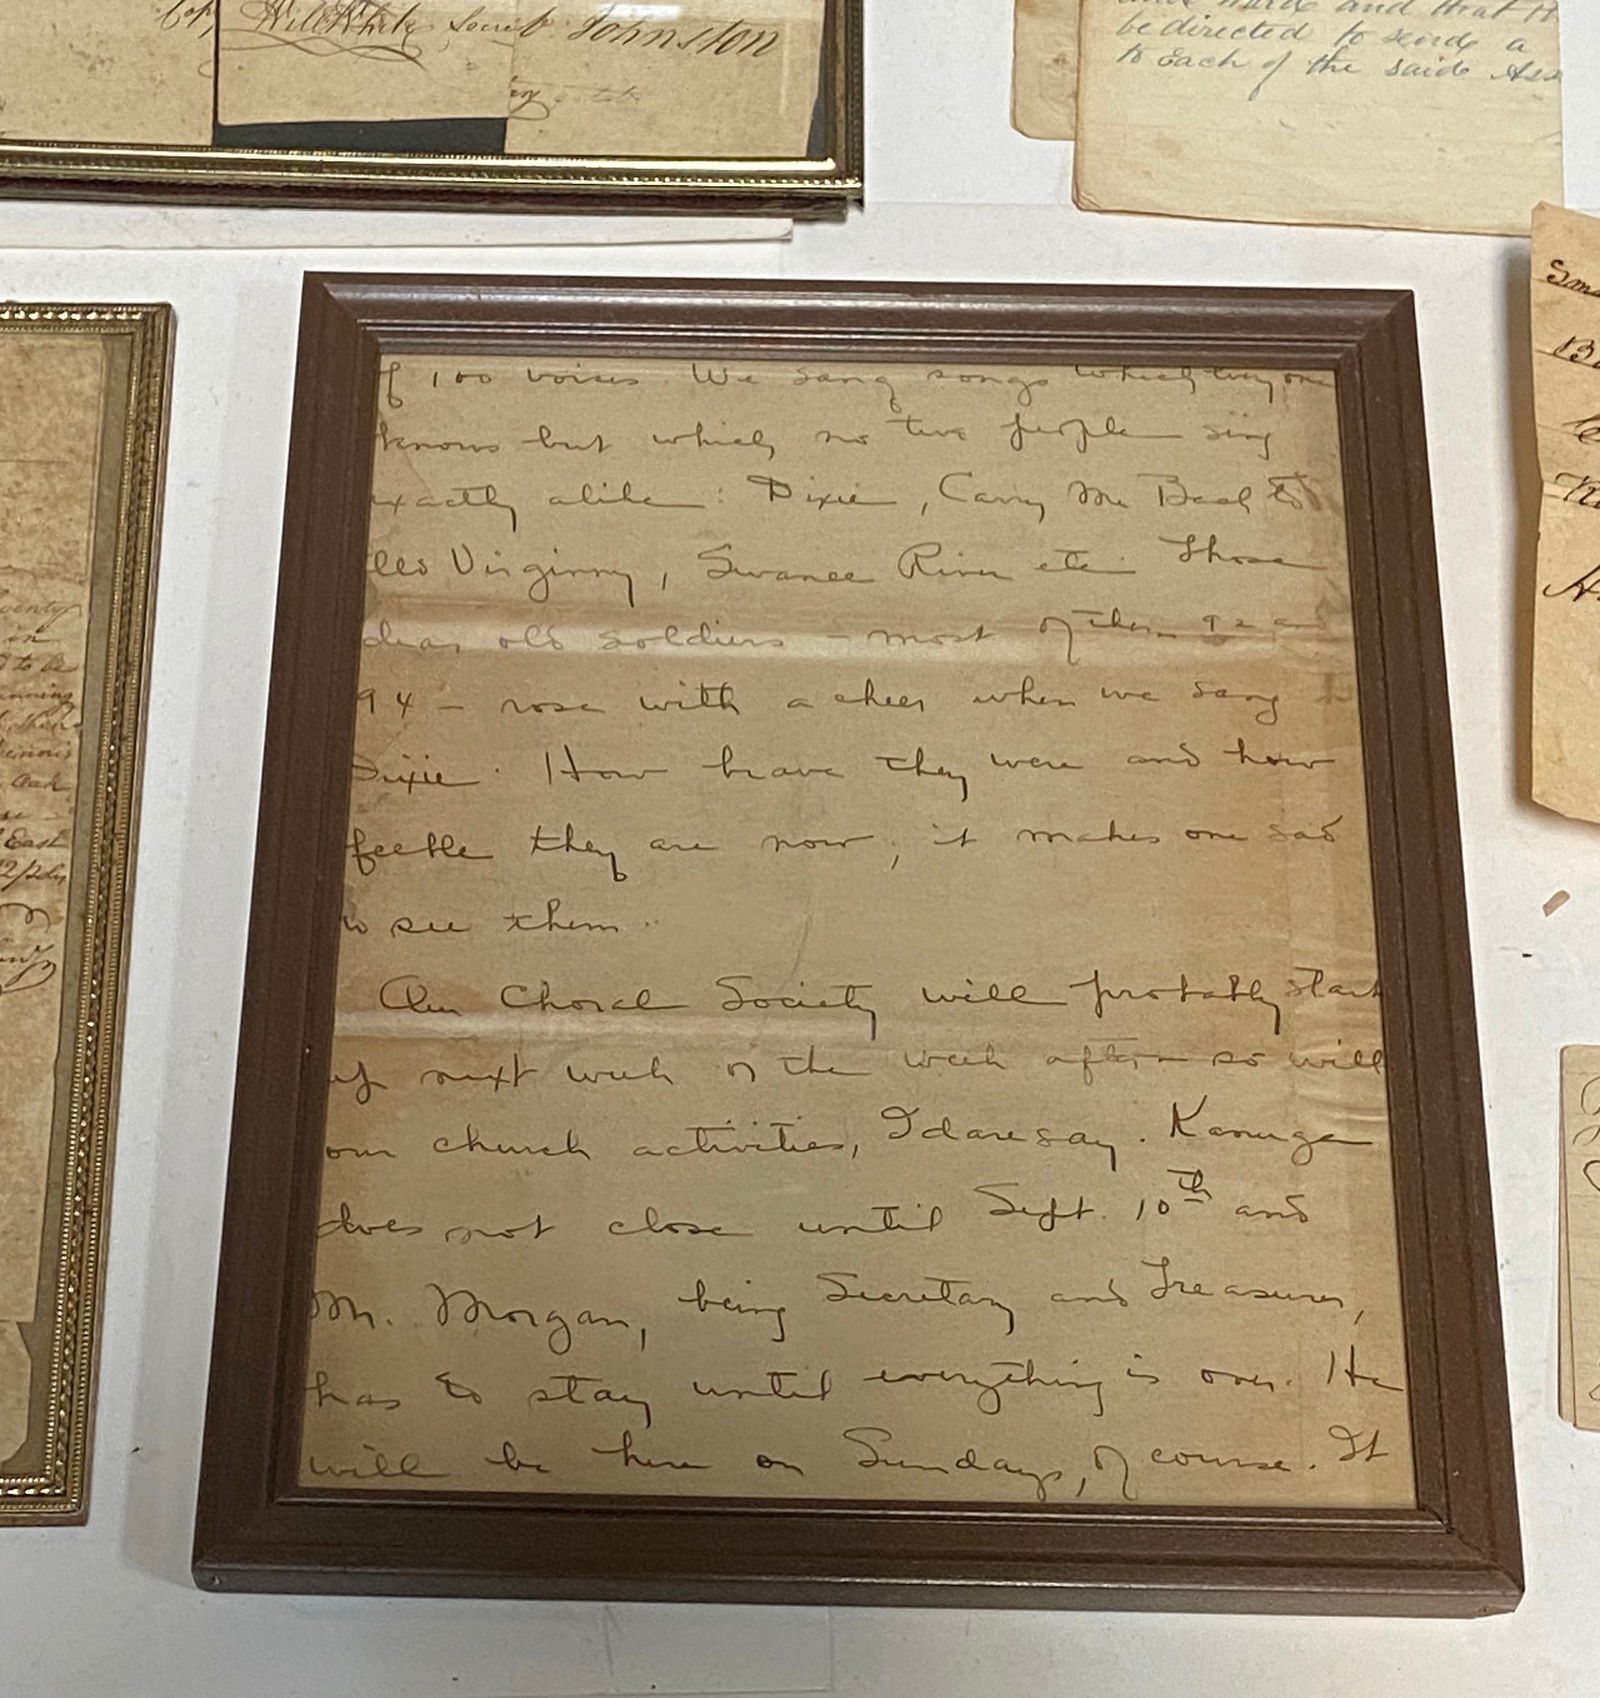 Copy Will White, Secret. Johnston
and that it
be directed to send a
to Each of the said Ass
of 100 voices. We sang songs which everyone
knows but which no two people sing
exactly alike: Dixie, Carry Me Back to
Old Virginny, Swanee River etc. Those
dear old soldiers - most of them 92 and
94 - rose with a cheer when we sang
Dixie. How brave they were and how
feeble they are now, it makes one sad
to see them.
Our Choral Society will probably start
up next week or the week after - so will
our church activities, I daresay. Kanuga
does not close until Sept. 10th and
Mr. Morgan, being Secretary and Treasurer,
has to stay until everything is over. He
will be here on Sundays, of course. It
in
to be
East